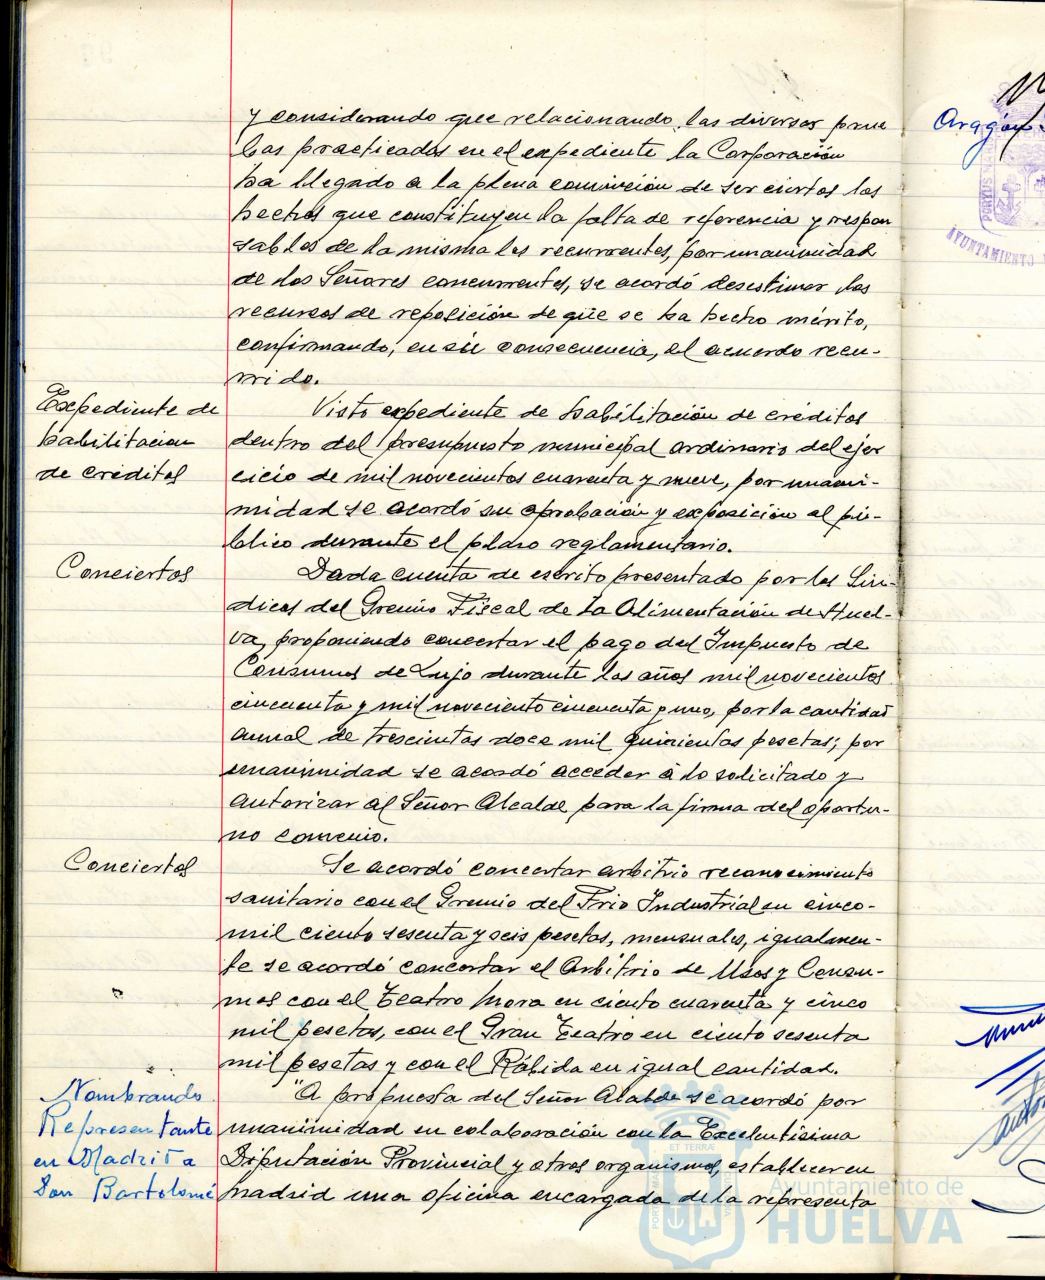 y considerando que relacionando las diversas prue
bas practicadas en el expediente la Corporación
ha llegado a la plena convicción de ser ciertos los
hechos que constituyen la falta de referencia y respon
sables de la misma los recurrentes, por unanimidad
de los Señores concurrentes, se acordó desestimar los
recursos de reposición de que se ha hecho mérito,
confirmando, en su consecuencia, el acuerdo recu-
rrido.
Expediente de
habilitacion
de créditos
Visto expediente de habilitación de créditos
dentro del presupuesto municipal ordinario del ejer
cicio de mil novecientos cuarenta y nueve, por unani-
midad se acordó su aprobación y exposición al pú-
blico durante el plazo reglamentario.
Conciertos
Dada cuenta de escrito presentado por los Sín-
dicos del Gremio Fiscal de la Alimentación de Huel-
va, proponiendo concertar el pago del Impuesto de
Consumos de Lujo durante los años mil novecientos
cincuenta y mil noveciento cincuenta y uno, por la cantidad
anual de trescientas doce mil quinientas pesetas; por
unanimidad se acordó acceder a lo solicitado y
autorizar al Señor Alcalde para la firma del oportu-
no convenio.
Conciertos
Se acordó concertar arbitrio reconocimiento
sanitario con el Gremio del Frio Industrial en cinco-
mil ciento sesenta y seis pesetas, mensuales, igualmen-
te se acordó concertar el Arbitrio de Usos y Consu-
mos con el Teatro Mora en ciento cuarenta y cinco
mil pesetas, con el Gran Teatro en ciento sesenta
mil pesetas y con el Rábida en igual cantidad.
Nombrando
Representante
en Madrid a
Don Bartolomé
"A propuesta del Señor Alcalde se acordó por
unanimidad en colaboración con la Excelentísima
Diputación Provincial y otros organismos, establecer en
Madrid una oficina encargada de la representa
Aragón
AYUNTAMIENTO
Ayuntamiento de
HUELVA